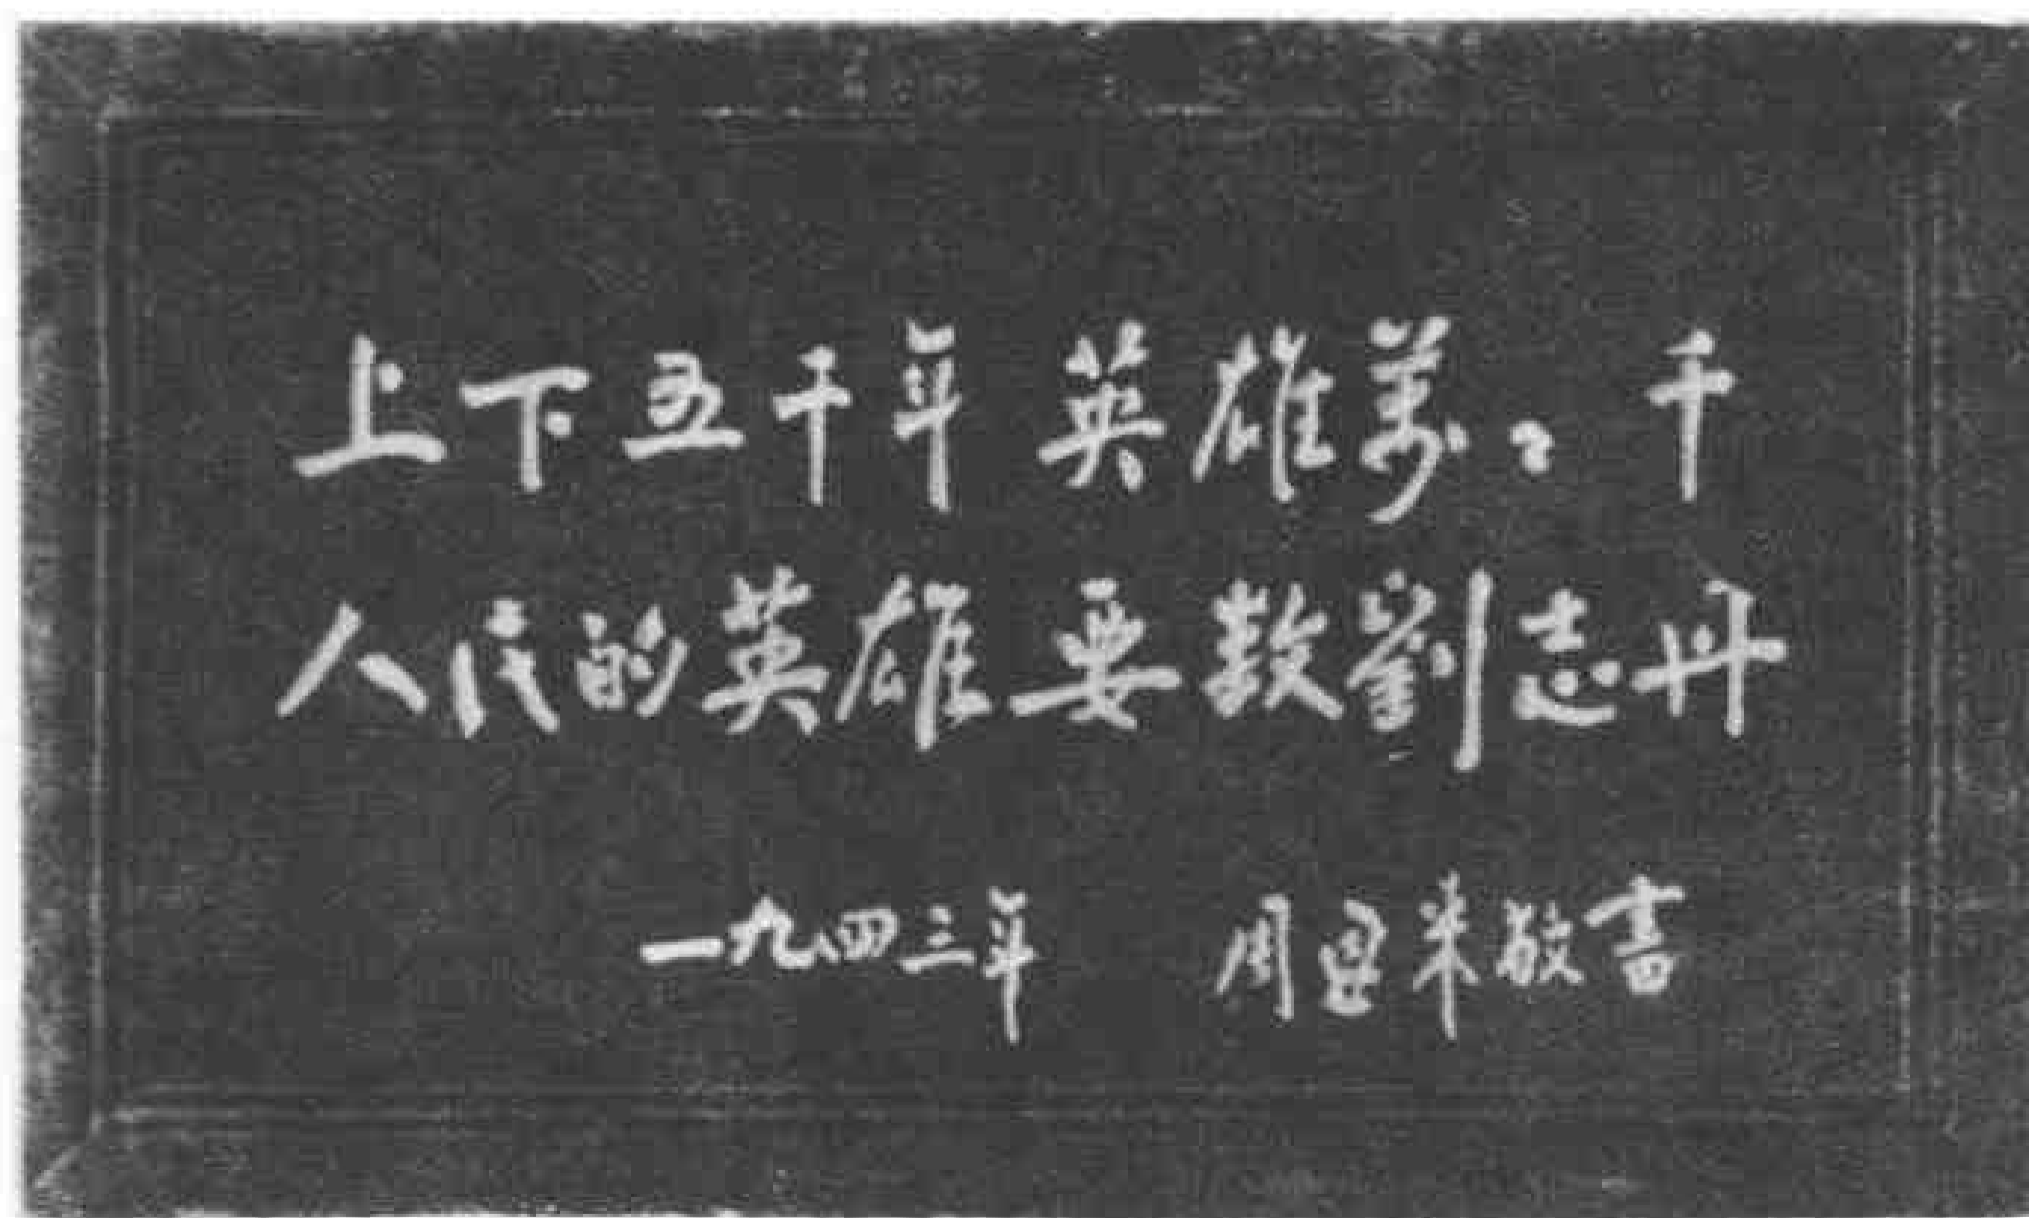 上下五千年 英雄萬〻千
人民的英雄 要数劉志丹
一九四三年 周恩来敬書